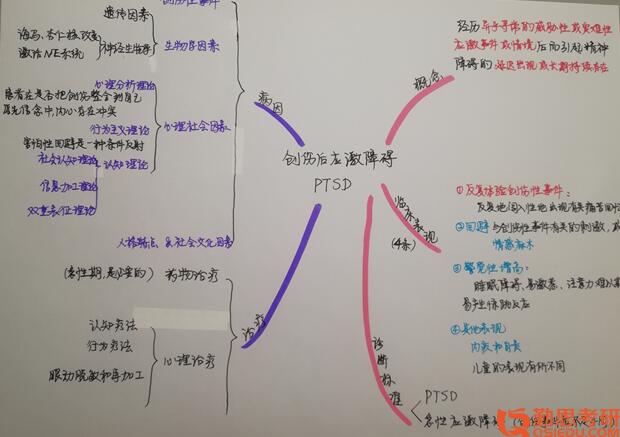 创伤性事件
遗传因素
海马、杏仁核改变
激活NE系统
神经生物学
生物学因素
心理分析理论
患者在是否把创伤整合到自己
原先信念中,内心存在冲突
行为主义理论
害怕性回避是一种条件反射
社会认知理论
信息加工理论
双重表征理论
认知理论
心理社会因素
人格特点及社会文化因素
病因
创伤后应激障碍
PTSD
概念
经历异乎寻常的威胁性或灾难性
应激事件或情境后而引起精神
障碍的延迟出现或长期持续存在
临床表现
(4条)
①反复体验创伤性事件:
反复地闯入性地出现有关痛苦回忆
②回避与创伤性事件有关的刺激,或
情感麻木
③警觉性增高:
睡眠障碍、易激惹、注意力难以集
易产生惊跳反应
④其他表现
内疚和自责
儿童的表现有所不同
诊断标准
PTSD
急性应激障碍
治疗
药物治疗
(急性期,是必要的)
心理治疗
认知疗法
行为疗法
眼动脱敏和再加工
勤思考研
QISIEDU.COM